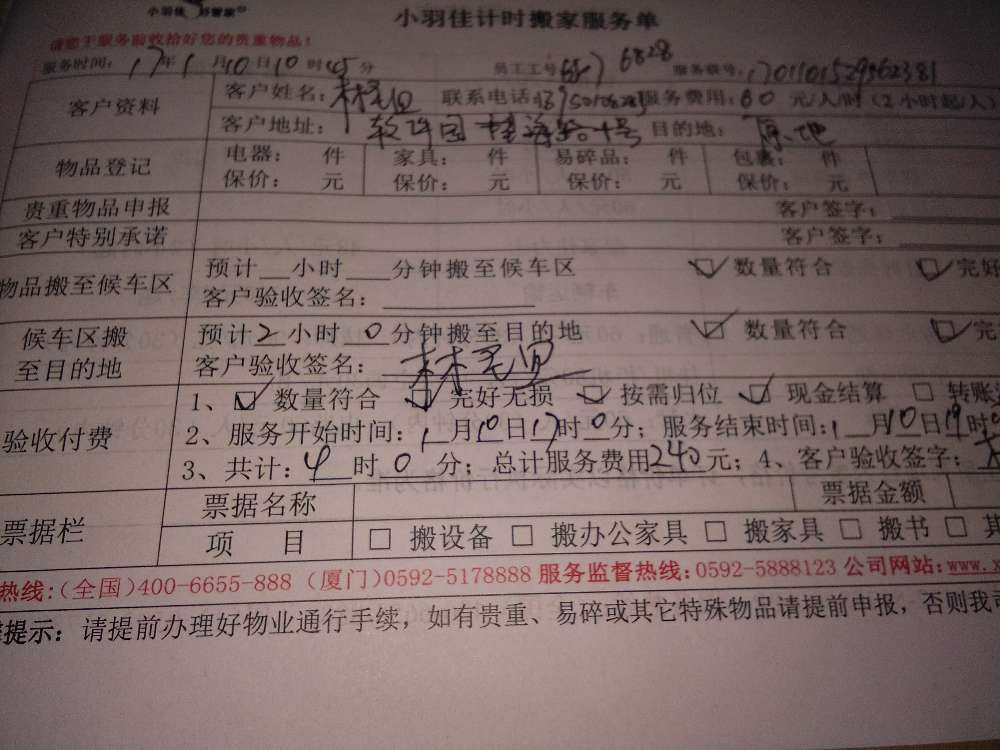 小羽佳计时搬家服务单
请您于服务前收拾好您的贵重物品！
服务时间：17年1月10日10时45分 员工工号：6517 6828 服务联号：1701101529562381
客户资料 客户姓名：林 联系电话： 服务费用：60元/人/时（2小时起/人）
客户地址：软件园 号 目的地：原地
物品登记 电器： 件 家具： 件 易碎品： 件 包裹： 件
保价： 元 保价： 元 保价： 元 保价： 元
贵重物品申报 客户签字：
客户特别承诺 客户签字：
物品搬至候车区 预计__小时___分钟搬至候车区 ☑数量符合 ☑完好
客户验收签名：
候车区搬至目的地 预计2小时0分钟搬至目的地 ☑数量符合 ☑完
客户验收签名：林
验收付费 1、☑数量符合 ☑完好无损 ☑按需归位 ☑现金结算 □转账
2、服务开始时间：1月10日17时0分；服务结束时间：1月10日19时
3、共计：4时0分；总计服务费用240元；4、客户验收签字：
票据栏 票据名称 票据金额
项目 □搬设备 □搬办公家具 □搬家具 □搬书 □其
热线：(全国)400-6655-888 (厦门)0592-5178888 服务监督热线：0592-5888123 公司网站：www.x
提示：请提前办理好物业通行手续，如有贵重、易碎或其它特殊物品请提前申报，否则我司